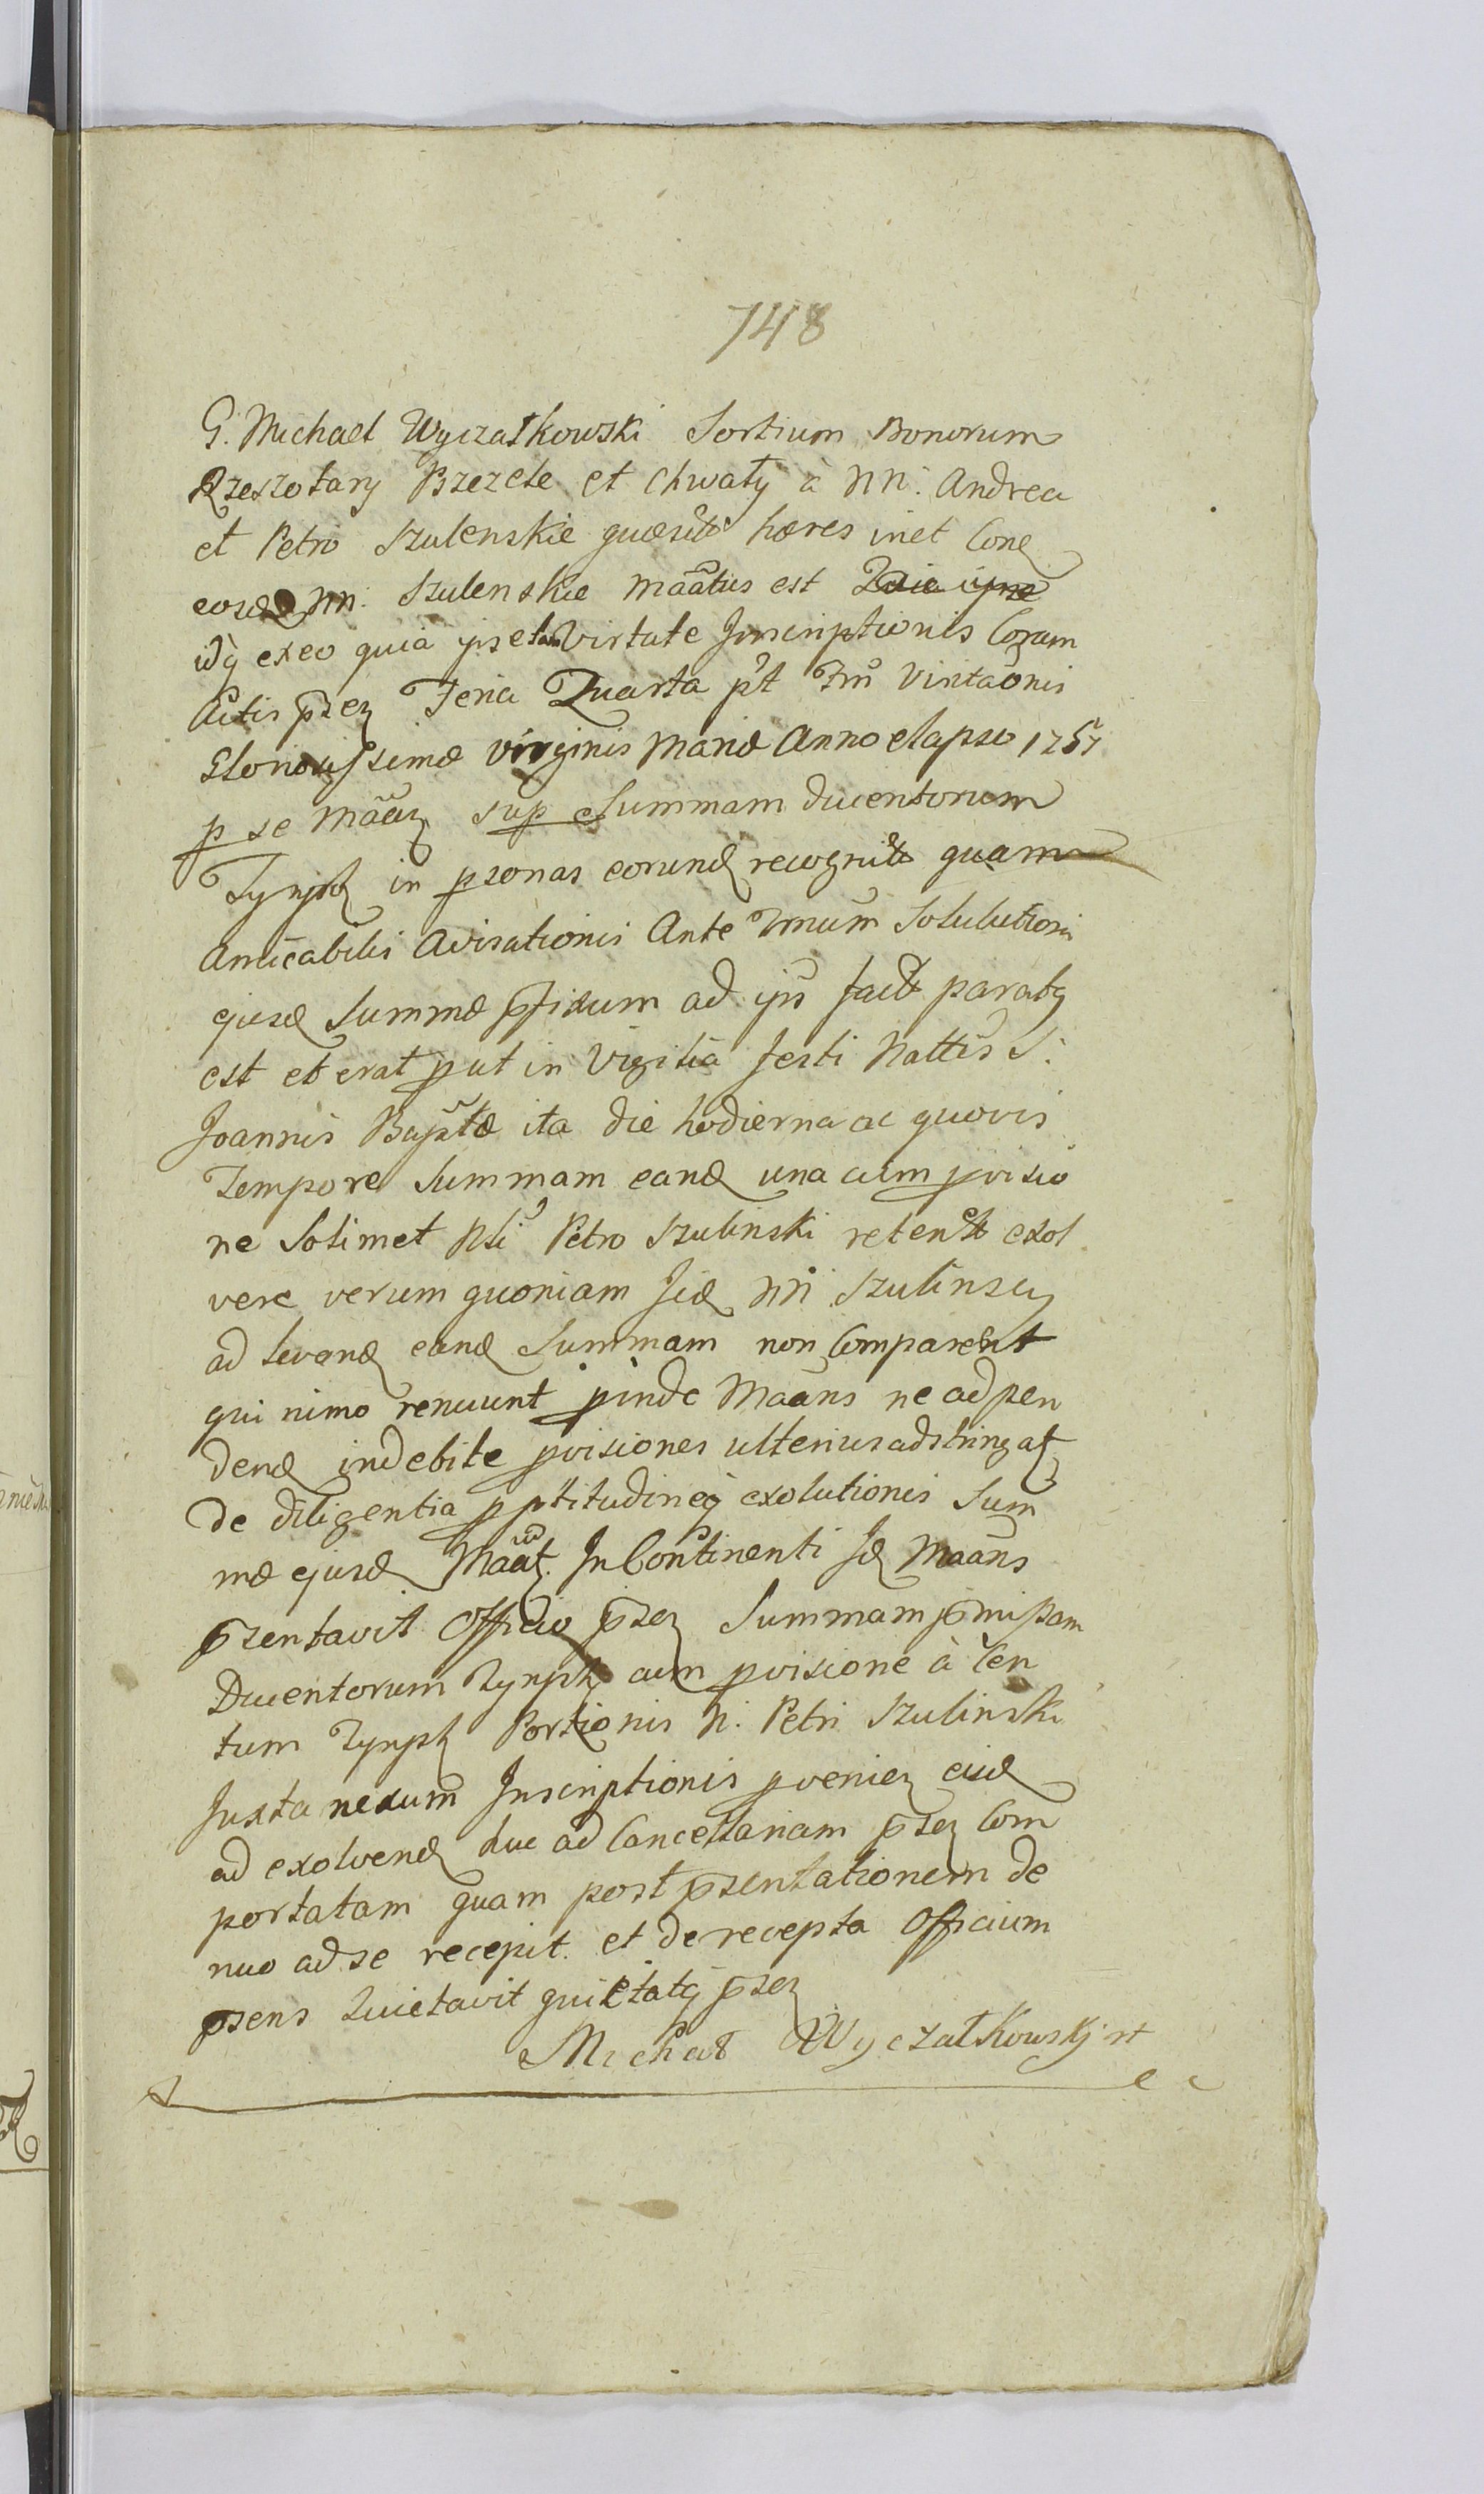 748
G. Michael Wyczałkowski Sortium Bonorum
Rzeszotary Pszczele et Chwały à NN. Andrea
et Petro Szulenskie quæsit hæres inet Cone
eosd NN. Szulenskie Maãtus est
idq exeo quia ipse virtute Inscriptionis Coram
Actis psen Feria Quarta pt Fm Visitaõnis
Gloriosissimæ Virginis Mariæ Anno elapso 1757
p se Maan sup Summam ducentorum
Tynph in psonas eorund recognit quam
amicabilis Avisationis Ante Tmum Solulutioni
ejusd Summæ pfixum ad ips fact paratq
est et erat put in Vigilia festi Nattis S.
Joannis Baptæ ita die hodierna ac quovis
Tempore Summam eand una cum pvisio
ne Solimet Nli Petro Szulinski retent exol
vere verum quoniam Jid NN Szulinscy
ad levand eand Summam non Comparent
qui nimo renuunt pinde Maans ne ad pen
dend indebite pvisiones ulterius adstringat
de diligentia pptitudineq exolutionis Sum
mæ ejusd Maat. In Continenti Jd Maans
psentavit Officio psen Summam pmissam
Ducentorum Tynph cum pvisione à Cen
tum Tynph Portionis N. Petri Szulinski
Juxta nexum Inscriptionis pvenien eisd
ad exolvend huc ad Cancellariam psen Com
portatam quam post psentationem de
nuo ad se recepit et de recepta Officium
psens Quietavit quietatq psen
Michał Wyczałkowskj